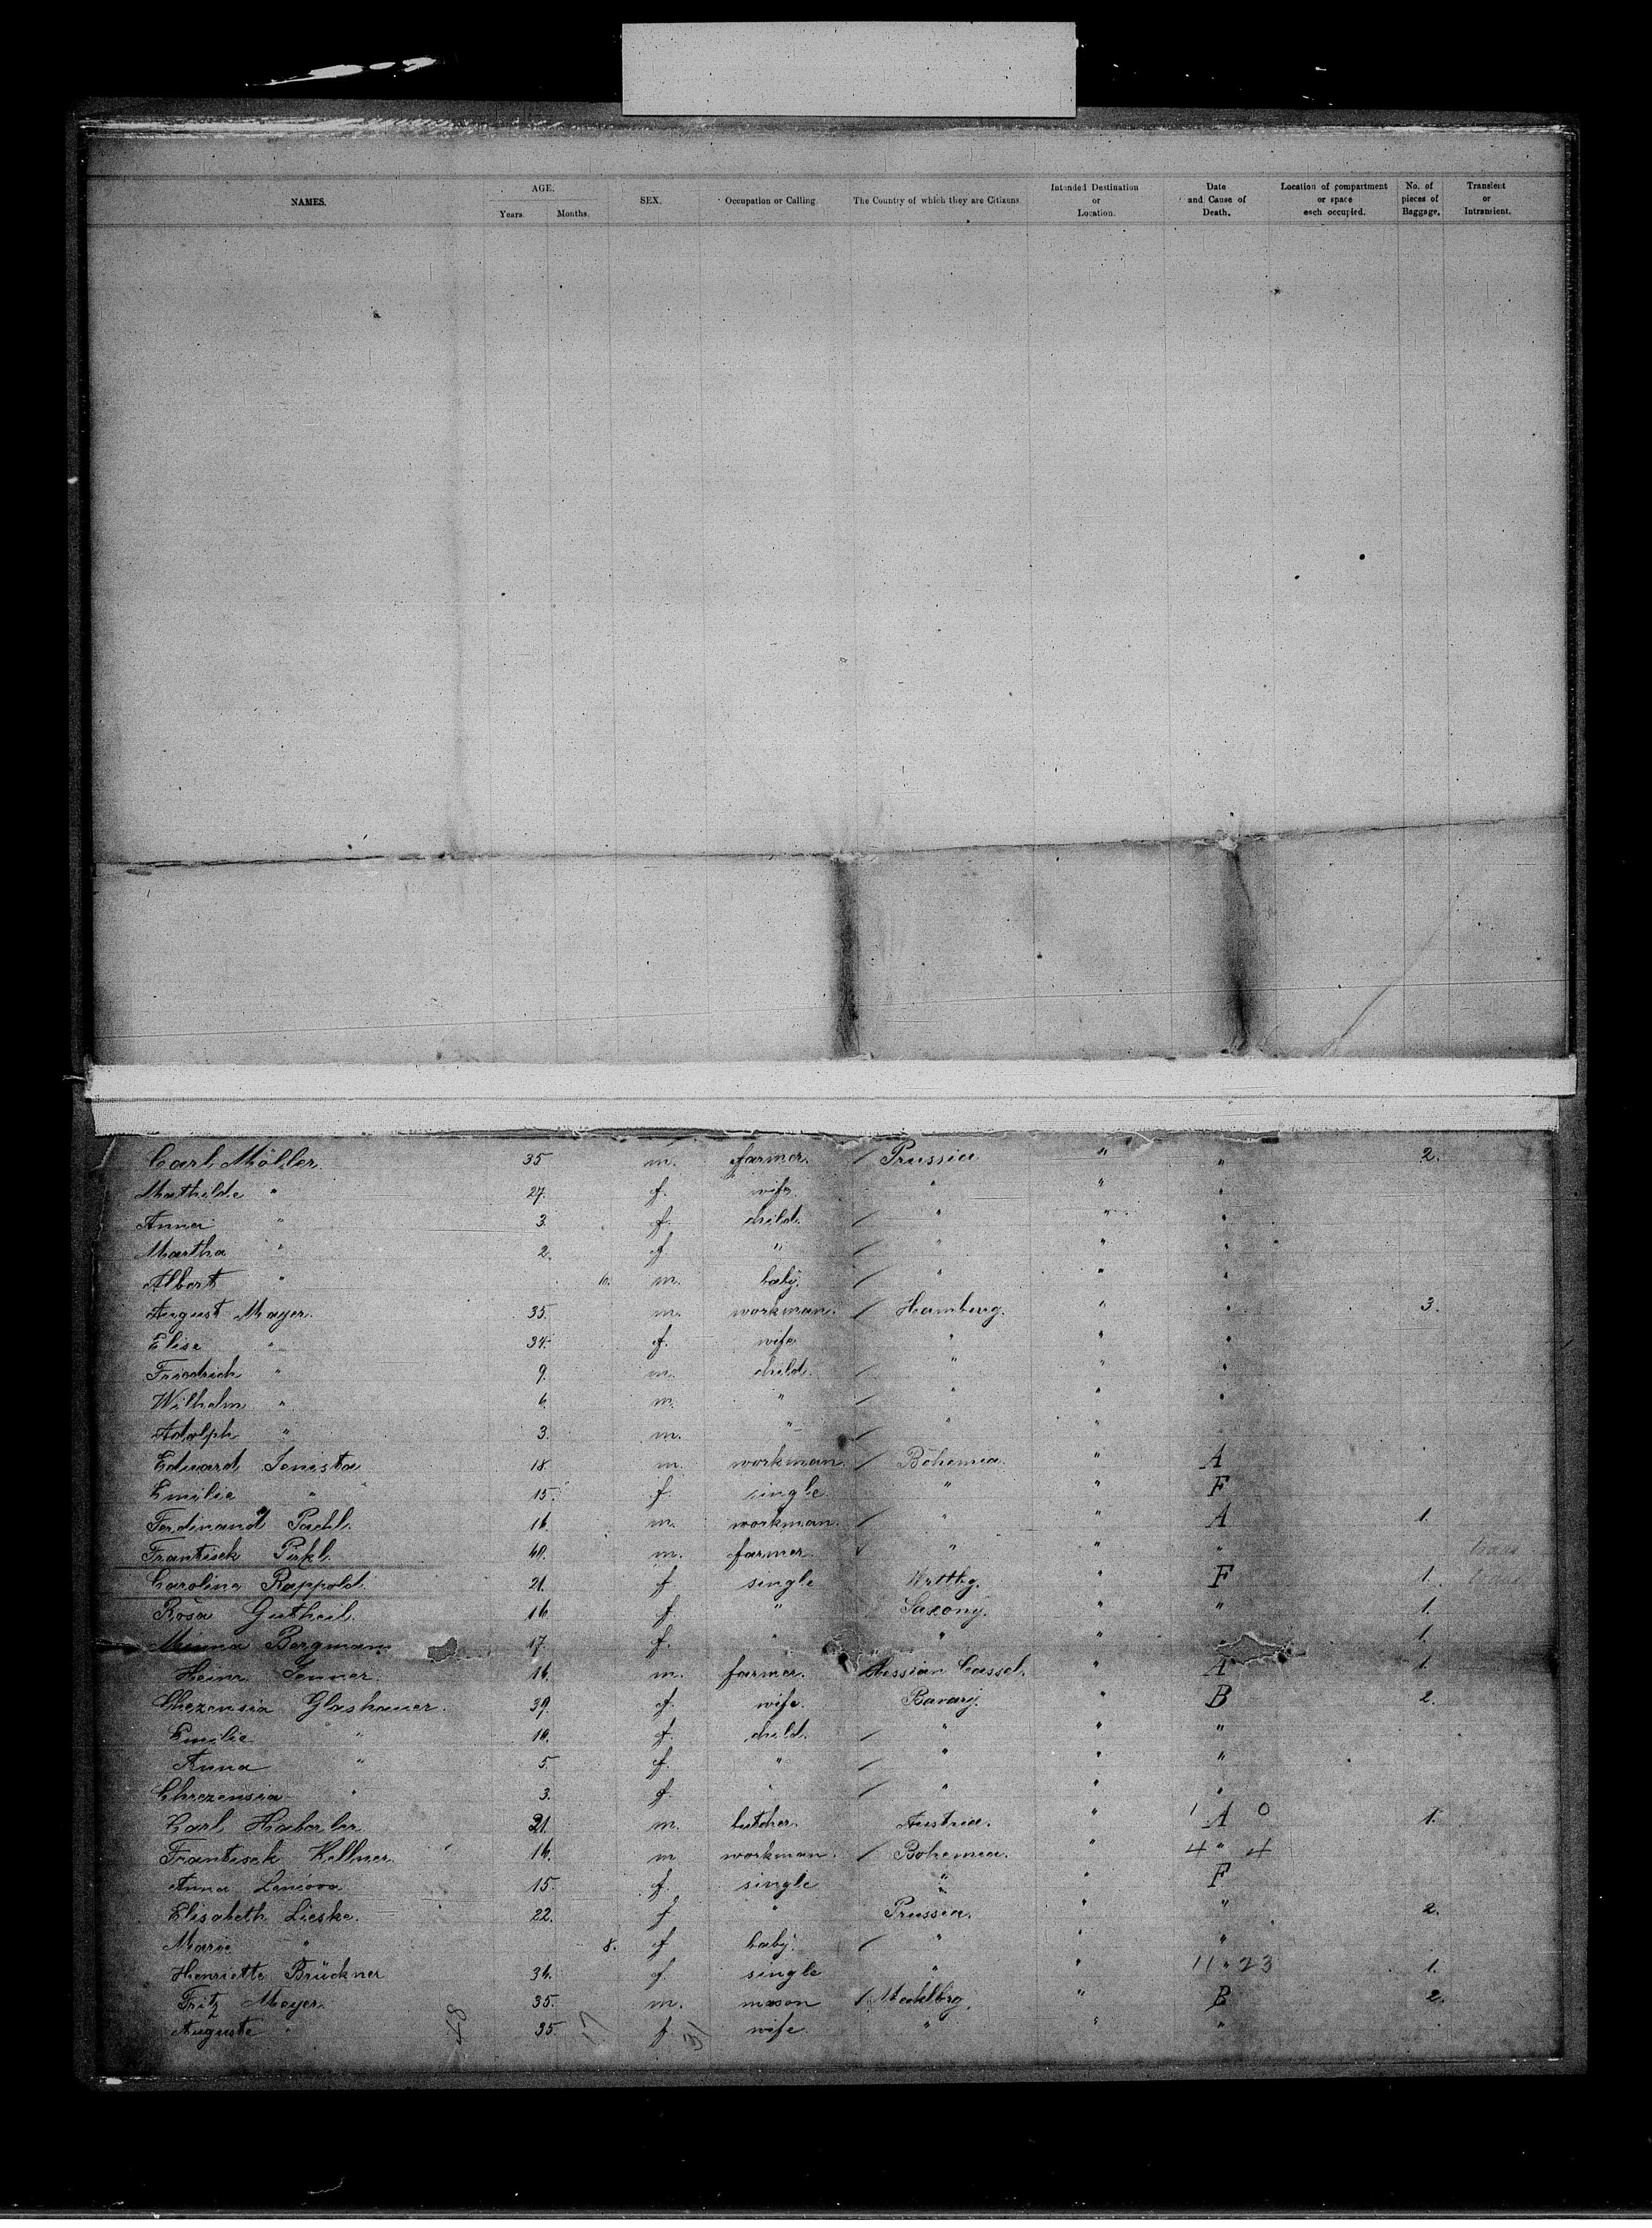 NAMES. AGE. Years. Months. SEX. Occupation or Calling The Country of which they are Citizens Intended Destination or Location. Date and Cause of Death. Location of compartment or space each occupied. No. of pieces of Baggage. Transient or Intransient.
Carl Möller 35 m. farmer. / Prussia " " 2.
Mathilde " 27. f. wife " " "
Anna " 3. f. child. / " " "
Martha " 2. f " / " " "
Albert " 10. m. baby. / " " "
August Mayer. 35. m. workman. / Hamburg. " " 3.
Elise " 34. f. wife " " "
Friedrich " 9. m. child. / " " "
Wilhelm " 6. m. " / " " "
Adolph " 3. m. " / " "
Eduard Jenista 18 m. workman. / Bohemia. " A
Emilie " 15. f. single " " F
Ferdinand Pachl. 16. m. workman. / " " A 1.
Frantisek Pirkl. 40. m. farmer. " " "
Carolina Rappold. 21. f single Wrttbg. " F 1.
Rosa Gutheil. 16 f. " Saxony. " " 1.
Minna Bergmann 17. f. " " " 1.
Heinr. Jenner. 16. m. farmer. Hessian Cassel. " A 1.
Chezensia Glashauer. 39. f. wife. Bavary. " B 2.
Emilie " 10. f. child. / " " "
Anna " 5. f. " / " " "
Chrezensia " 3. f " / " " "
Carl Haberler 21. m. butcher. Austria. " 1 A 0 1.
Frantisek Kellner. 16. m workman. / Bohemia. " 4 " 4
Anna 15. f. single " " F
Elisabeth Lieske. 22. f " Prussia. " " 2.
Marie " 8. f baby. / " " "
Henriette Brückner 36. f. single " " 11 " 23 1.
Fritz Meyer. 35. m. mason / Mecklbrg. " B 2.
Auguste " 48 35. 17 f. 31 wife " " "